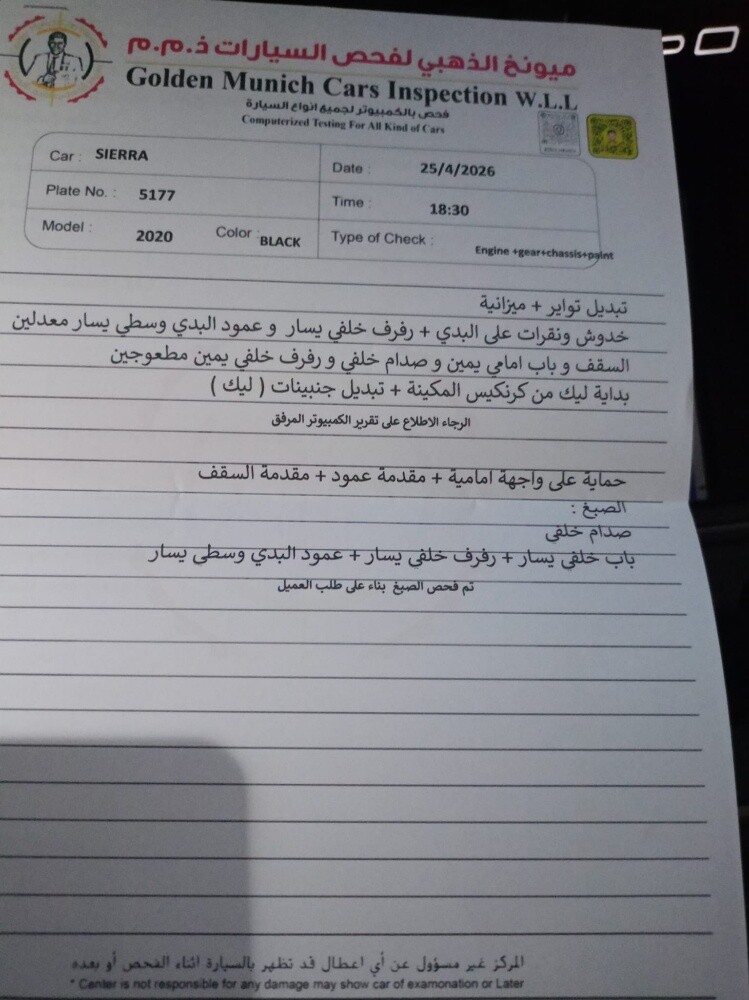 ميونخ الذهبي لفحص السيارات ذ.م.م
Golden Munich Cars Inspection W.L.L
فحص بالكمبيوتر لجميع انواع السيارة
Computerized Testing For All Kind of Cars
Car : SIERRA
Date : 25/4/2026
Plate No. : 5177
Time : 18:30
Model : 2020 Color : BLACK
Type of Check : Engine +gear+chassis+paint
تبديل تواير + ميزانية
خدوش ونقرات على البدي + رفرف خلفي يسار و عمود البدي وسطي يسار معدلين
السقف و باب امامي يمين و صدام خلفي و رفرف خلفي يمين مطعوجين
بداية ليك من كرنكيس المكينة + تبديل جنبينات ( ليك )
الرجاء الاطلاع على تقرير الكمبيوتر المرفق
حماية على واجهة امامية + مقدمة عمود + مقدمة السقف
الصبغ :
صدام خلفي
باب خلفي يسار + رفرف خلفي يسار + عمود البدي وسطي يسار
تم فحص الصبغ بناء على طلب العميل
المركز غير مسؤول عن أي اعطال قد تظهر بالسيارة اثناء الفحص أو بعده
* Center is not responsible for any damage may show car of examonation or Later